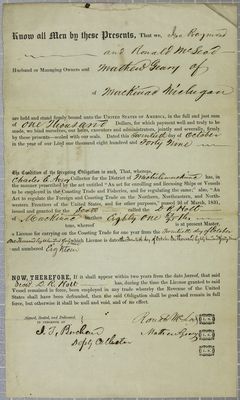 Know all Men by these Presents, That we, Ira Raymond
and Ronald McLeod
Husband or Managing Owners and Mathew Geary of
Mackinac Michigan
are held and stand firmly bound unto the UNITED STATES OF AMERICA, in the full and just sum
of One Thousand Dollars, for which payment well and truly to be
made, we bind ourselves, our heirs, executors and administrators, jointly and severally, firmly
by these presents—sealed with our seals. Dated this day of October
in the year of our Lord one thousand eight hundred and Forty Nine
The Condition of the foregoing Obligation is such, That whereas,
Charles E. Avery Collector for the District of Michilimackinac has, in
the manner prescribed by the act entitled "An act for enrolling and licensing Ships or Vessels
to be employed in the Coasting Trade and Fisheries, and for regulating the same;" also, "An
Act to regulate the Foreign and Coasting Trade on the Northern, Northeastern, and North-
western Frontiers of the United States, and for other purposes," passed 2d of March, 1831,
issued and granted for the called the
of Mackinac burthen Eighty One
tons, whereof is at present Master,
a License for carrying on the Coasting Trade for one year from the day of October
which License is
and numbered Eighteen
NOW, THEREFORE, If it shall appear within two years from the date hereof, that said
has, during the time the License granted to said
Vessel remained in force, been employed in any trade whereby the Revenue of the United
States shall have been defrauded, then the said Obligation shall be good and remain in full
force, but otherwise it shall be null and void, and of no effect.
Signed, Sealed, and Delivered,
IN PRESENCE OF
Ronald McLeod
Mathew Geary
Depty Collector